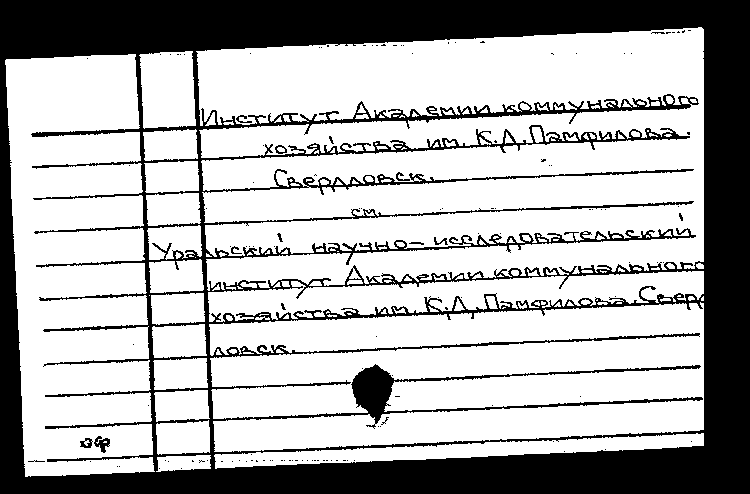 Институт Академии коммунального
хозяйства им. К.Д. Памфилова.
Свердловск.
см.
Уральский научно-исследовательский
институт Академии коммунального
хозяйства им. К.Д. Памфилова. Сверд
ловск.